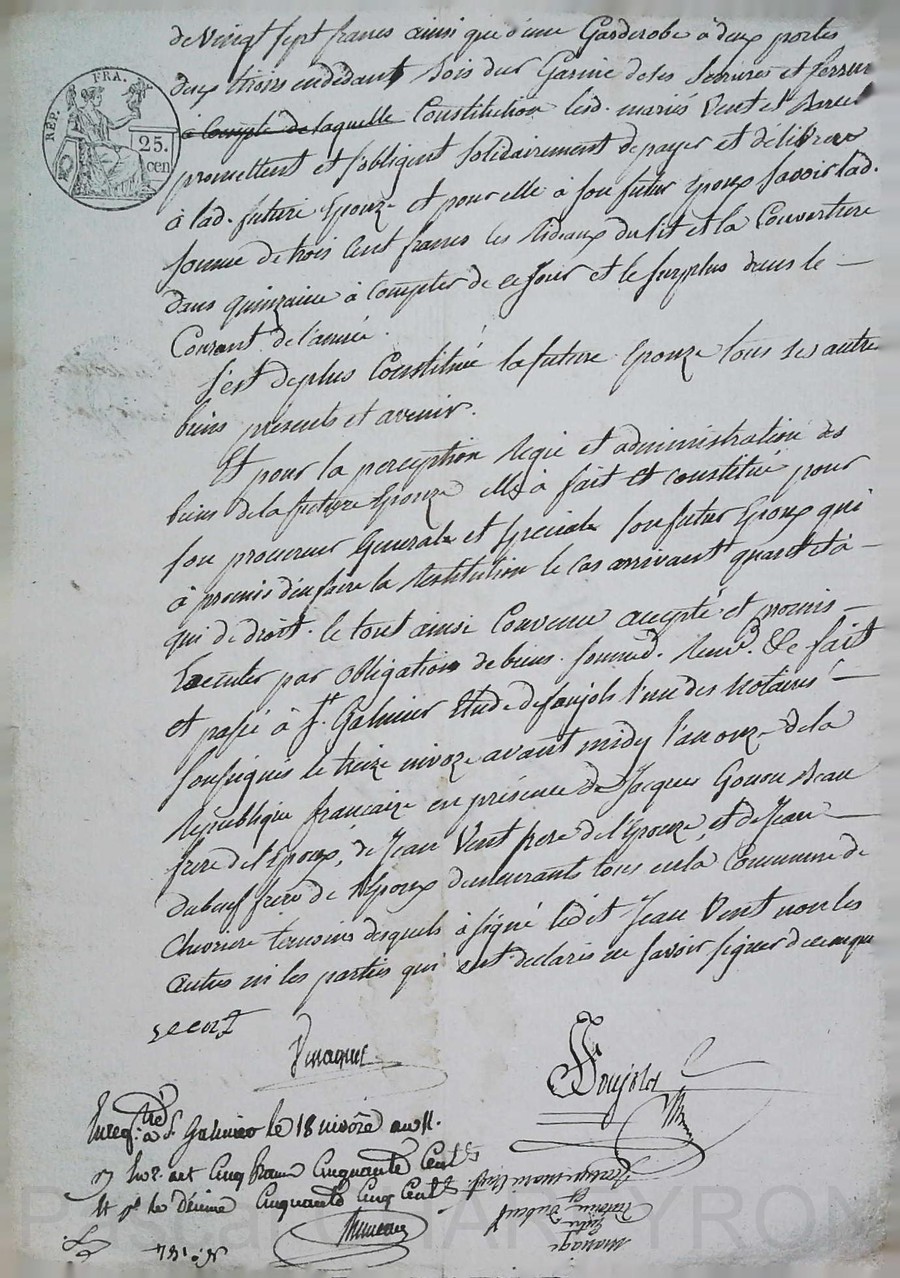 de Vingt sept francs ainsi que d'une Garderobe à deux portes
deux tiroirs endedant bois dur Garnie de ses serrures et ferrur
à compte de laquelle Constitution lesd. mariés Vent et
promettent et s'obligent solidairement de payer et délivrer
à lad. future Epouze et pour elle à son futur Epoux savoir lad.
somme de trois cent francs les Rideaux du lit et la Couverture
dans quinzaine à compter de ce Jour et le surplus dans le —
Courant de l'année.
S'est de plus Constituée la future Epouze tous ses autre
biens presents et avenir.
Et pour la perception Regie et administration des
biens de la future Epouze elle à fait et constitué pour
son procureur General et special son futur Epoux qui
à promis d'en faire la Restitution le cas arrivant quand et à —
qui de droit. le tout ainsi Convenu accepté et promis —
Executer par obligation de biens. soumis.d Renv.d &c fait
et passé à St. Galmier Etude de foujols l'un des Notaires —
soussignés le treize nivoze avant midy l'an onze de la
République francaize en présence de Jacques Gonon Beau
frere de l'Epoux, de Jean Vent frere de l'Epouze, et de Jean —
Dubœuf frere de l'Epoux demeurants tous en la Commune de
Chevriere temoins desquels à signé led.et Jean Vent non les
autres ni les parties qui ont déclarés ne savoir signer de ce enquis
RÉP. FRA.
25.
cen
Foujols
Enreg.tré à St. Galmier le 18 nivôse an 11.
cinq francs Cinquante Cent.s
et pr le Décime Cinquante Cinq Cent.s
Mariage
Entre
Antoine Dubœuf
Et